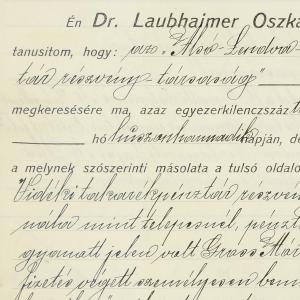 Én Dr. Laubhaimer Oszka
tanusitom, hogy: az "Alsó-Lendva-
tár részvény-társaság"
megkeresésére ma, azaz egyezerkilenczszáz t
hó huszonharmadik napján, de
a melynek szószerinti másolata a tulsó oldalo
Vidéki takarékpénztár részvé
nála mint telepesnél, pénzt
gyanatt jelen volt Gross Mór
fizetés végett személyesen